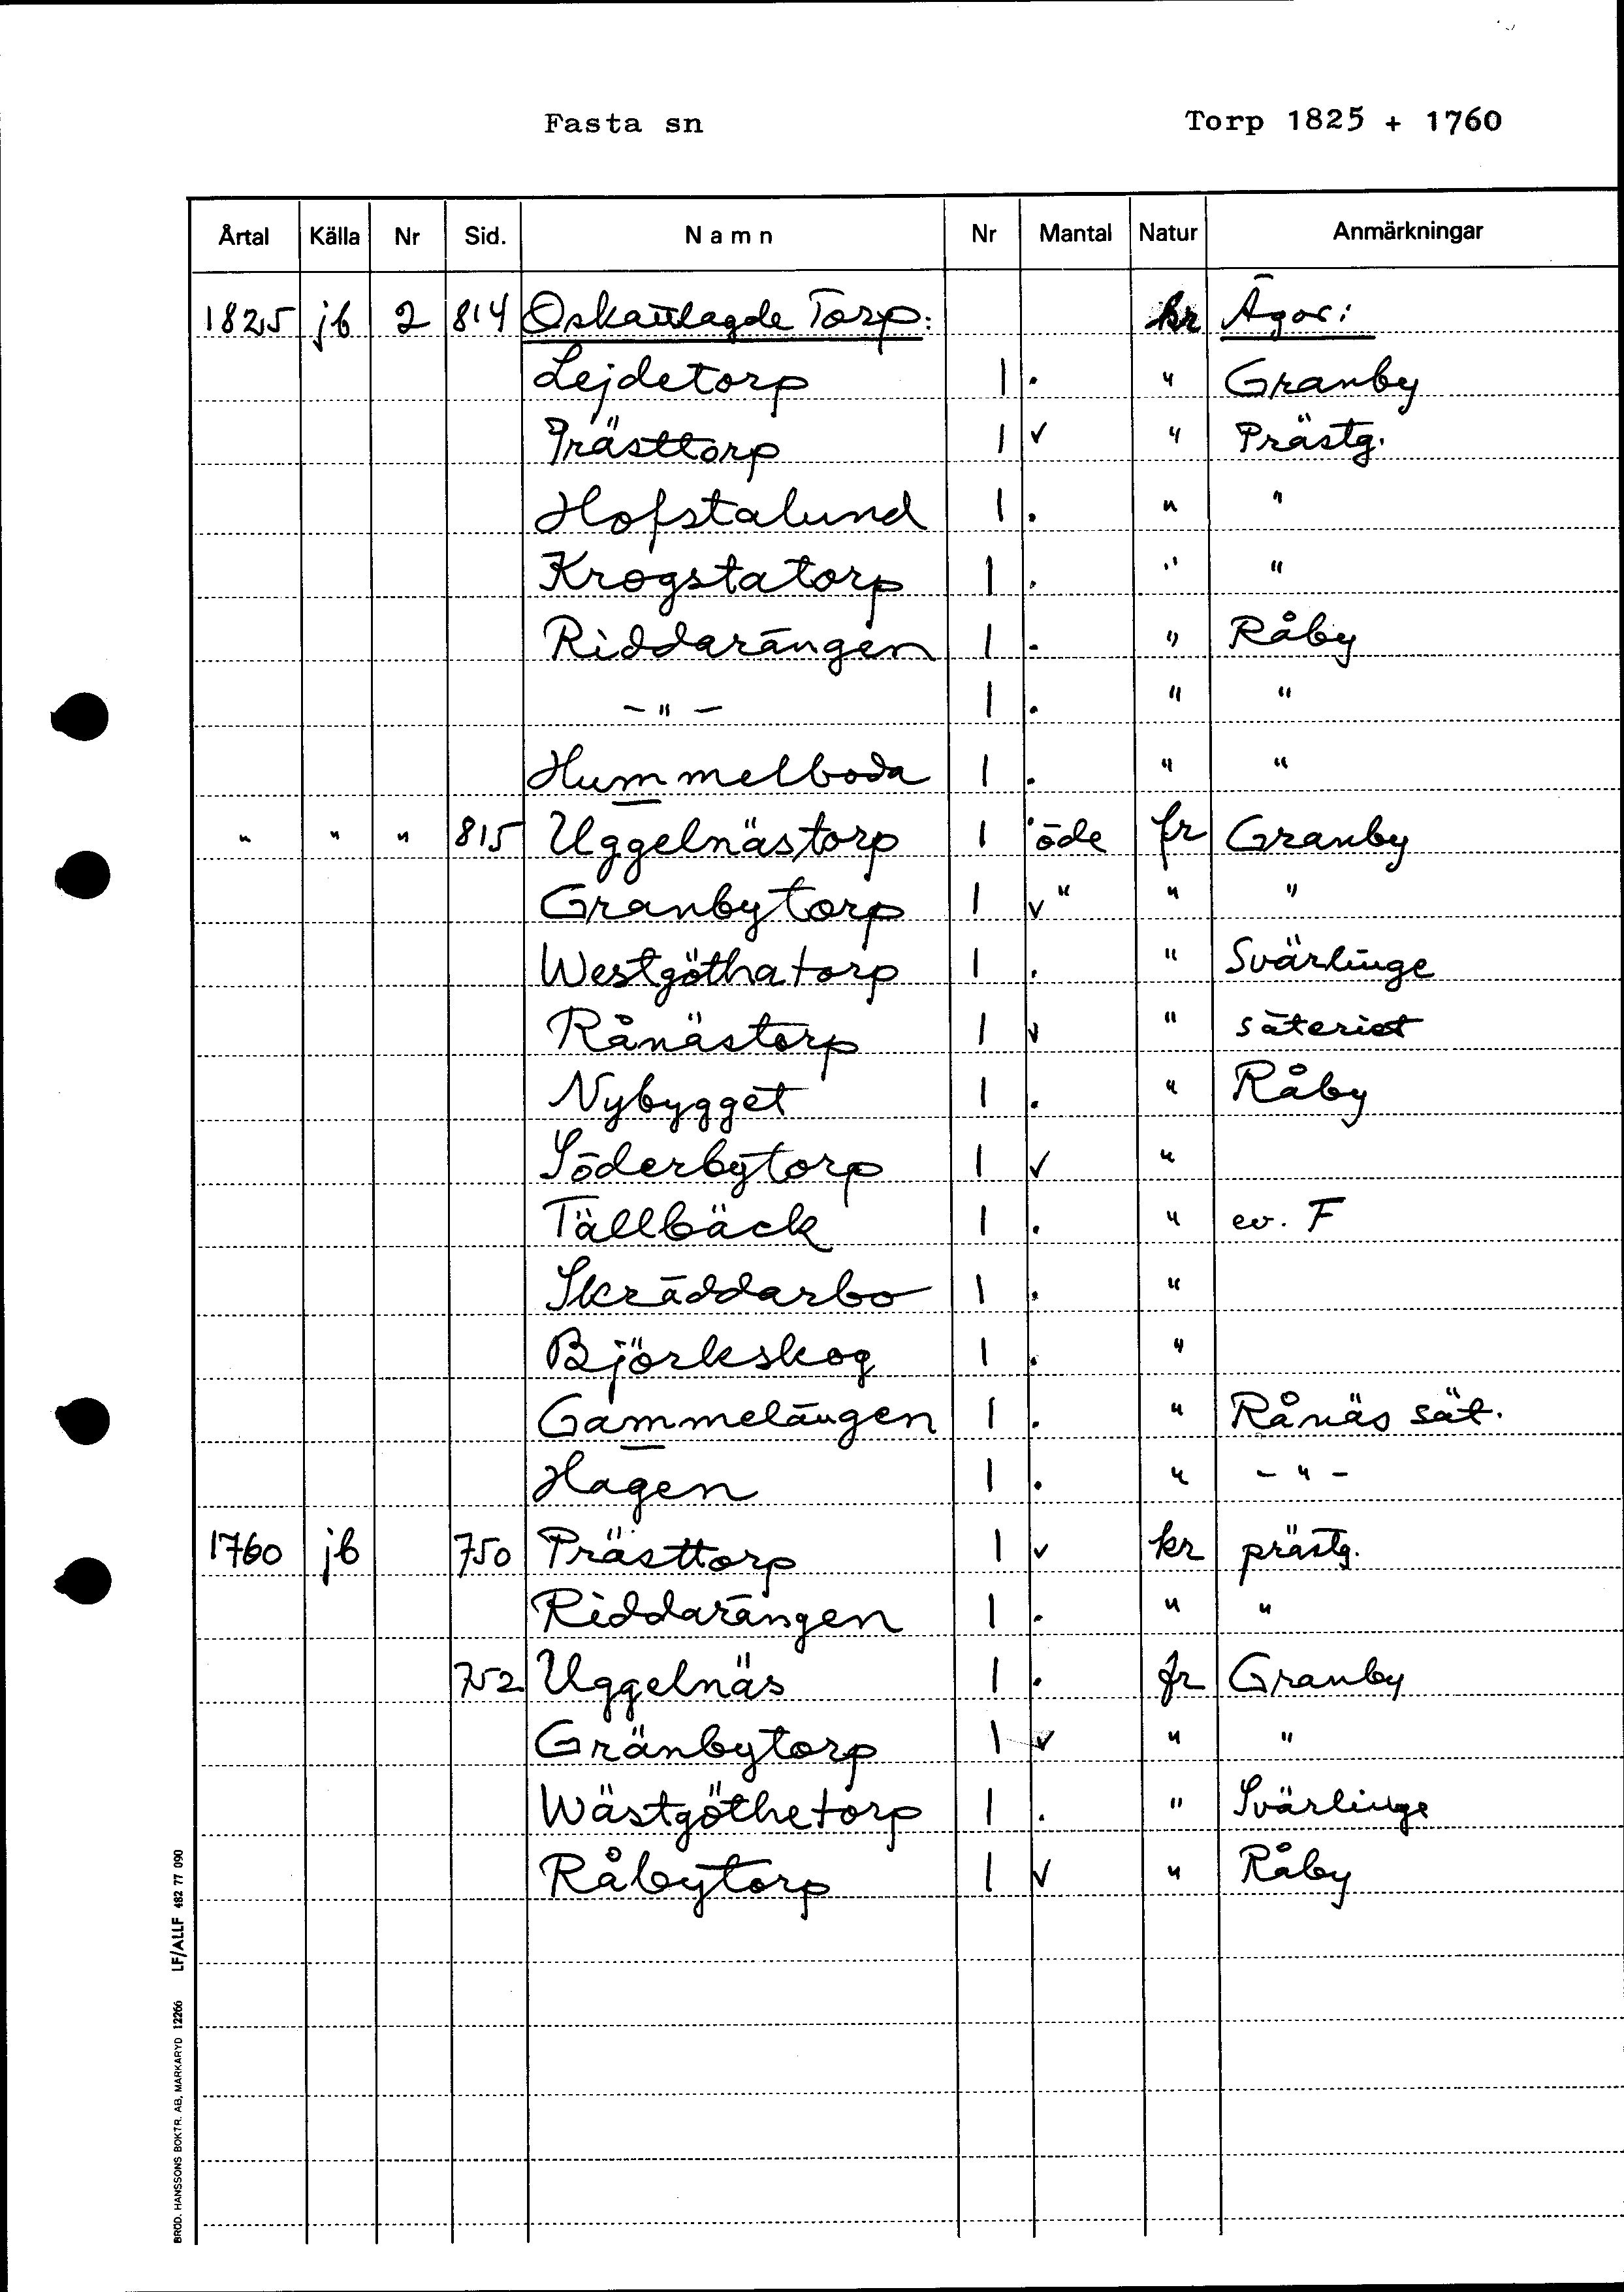 Fasta sn Torp 1825 + 1760
Årtal Källa Nr Sid. Namn Nr Mantal Natur Anmärkningar
1825 jb 2 814 Oskattlagde Torp: kr Ägor:
Lejdetorp 1 . " Granby
Prästtorp 1 ✓ " Prästg.
Hofstalund 1 . " "
Krogstatorp 1 . " "
Riddarängen 1 . " Råby
— " — 1 . " "
Hummelboda 1 . " "
" " " 815 Uggelnästorp 1 öde fr Granby
Granbytorp 1 ✓ " " "
Westgöthatorp 1 . " Svärlinge
Rånästorp 1 ✓ " säteriet
Nybygget 1 . " Råby
Söderbytorp 1 ✓ "
Tällbäck 1 . " ev. F
Skräddarbo 1 . "
Björkskog 1 . "
Gammelängen 1 . " Rånäs sät.
Hagen 1 . " – " –
1760 jb 750 Prästtorp 1 ✓ kr prästg.
Riddarängen 1 . " "
752 Uggelnäs 1 . fr Granby
Gränbytorp 1 ✓ " "
Wästgöthetorp 1 . " Svärlinge
Råbytorp 1 ✓ " Råby
BRÖD. HANSSONS BOKTR. AB, MARKARYD 12266 LF/ALLF 482 77 090